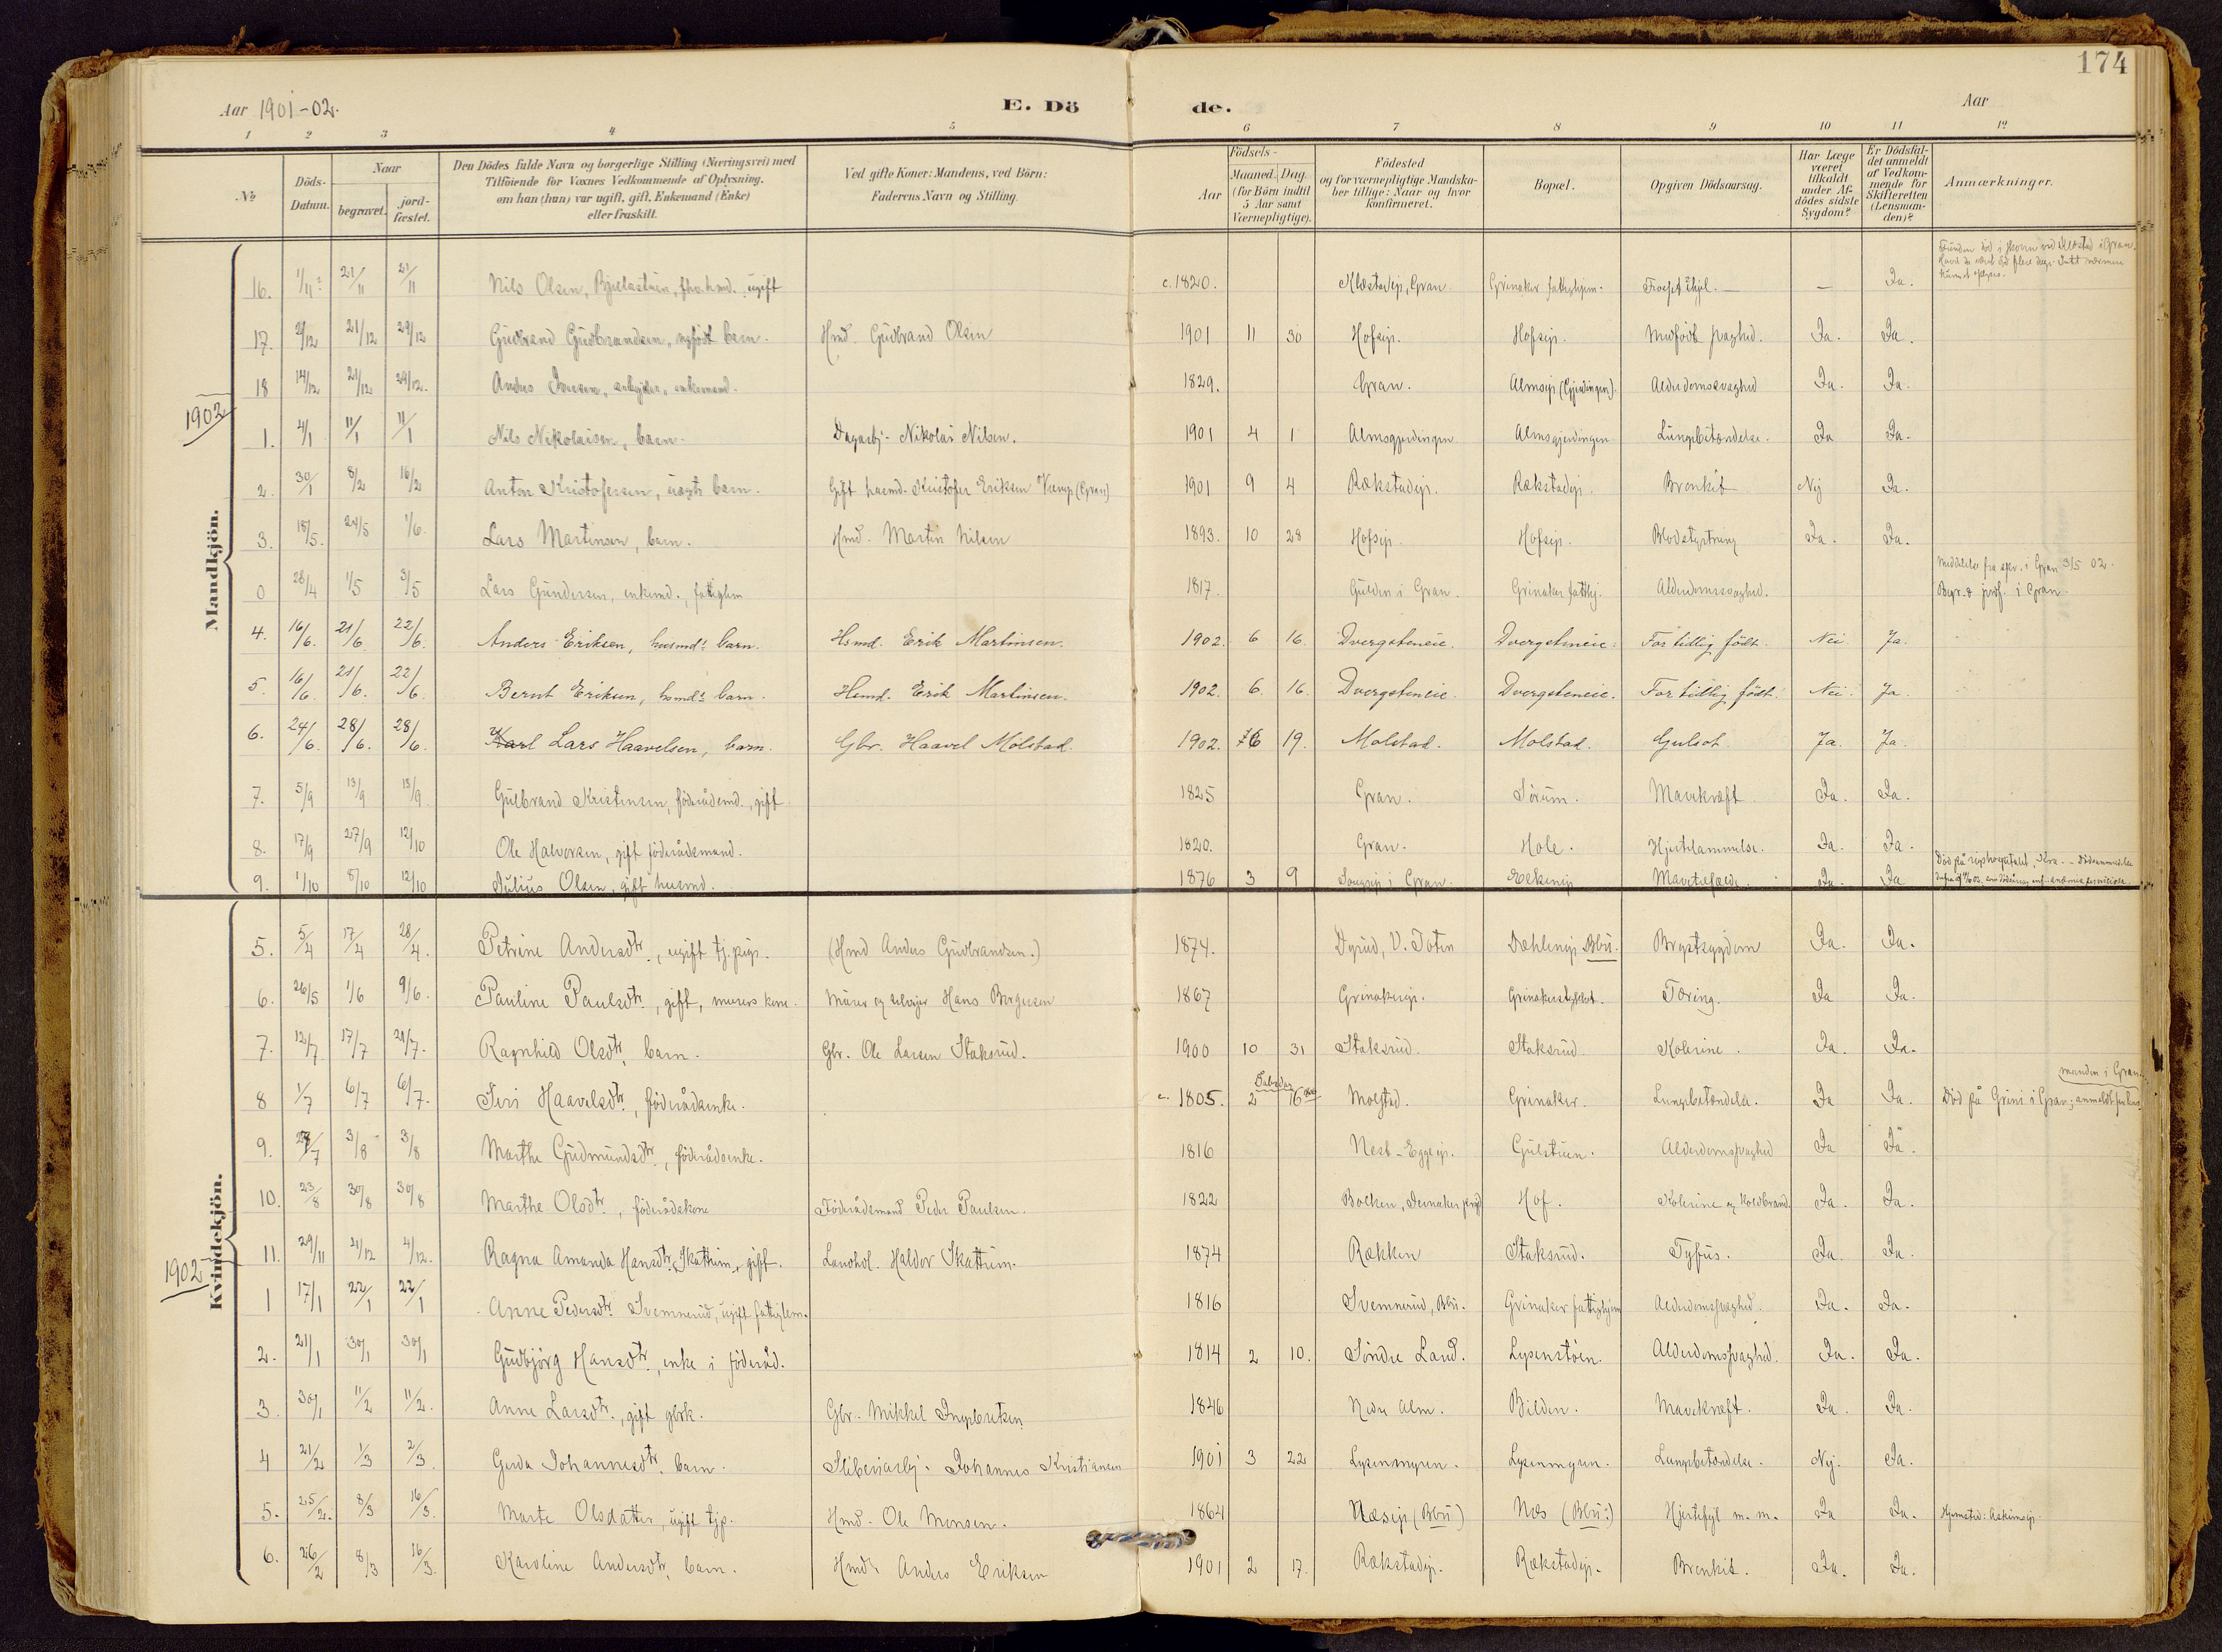 174
Aar 1901-02.
E. Dö de.
Aar
1 2 3 4 5 6 7 8 9 10 11 12
No
Döds-Datum.
Naar
begravet.
jord-fæstet.
Den Dödes fulde Navn og borgerlige Stilling (Næringsvei) med
Tilföiende for Voxnes Vedkommende af Oplysning,
om han (hun) var ugift, gift, Enkemand (Enke)
eller fraskilt.
Ved gifte Koner: Mandens, ved Börn:
Faderens Navn og Stilling.
Födsels-
Aar
Maaned. Dag.
(for Börn indtil
5 Aar samt
Værnepligtige).
Födested
og for værnepligtige Mandska-
ber tillige: Naar og hvor
konfirmeret.
Bopæl.
Opgiven Dödsaarsag.
Har Læge
været
tilkaldt
under Af-
dödes sidste
Sygdom?
Er Dödsfal-
det anmeldt
af Vedkom-
mende for
Skifteretten
(Lensman-
den)?
Anmærkninger.
Mandkjön.
16. 1/11? 21/11 21/11 Nils Olsen, ugift c. 1820. Gran. Grinaker — — Ja. Funden död i skoven ved i Gran.
17. 2/12 21/12 29/12 Gudbrand Gudbrandsen, nyfödt barn. Hmd. Gudbrand Olsen 1901 11 30 Hofseje. Hofseje. Medfödt svaghed. Ja. Ja.
18 14/12 21/12 29/12. Anders Iversen, arbejder, enkemand. 1829. Gran. Alderdomssvaghed Ja. Ja.
1902
1. 4/1 11/1 11/1 Nils Nikolaisen, barn. Dagarbj. Nikolai Nilsen. 1901 4 1 Almsgjerdingen Almsgjerdingen Lungebetændelse. Ja Ja.
2. 30/1 8/2 16/2 Anton Kristofersen, uægte barn. Gift husmd. Kristofer Eriksen (Gran) 1901 9 4 Rækstadeje. Rækstadeje. Bronkit Nej Ja.
3. 18/5. 24/5 1/6. Lars Martinsen, barn. Hmd. Martin Nilsen 1893. 10 28 Hofseje. Hofseje. Blodstyrtning Ja. Ja.
0 28/4 1/5 3/5 Lars Gundersen, enkemd., fattiglem 1817. Gulden i Gran. Grinaker fatthj. Alderdomssvaghed. Meddelelse fra spr. i Gran 3/5 02. Begr. & jordf. i Gran.
4. 16/6. 21/6. 22/6. Anders Eriksen, husmds barn. Hsmd. Erik Martinsen. 1902. 6 16. Dvergsteneie. Dvergsteneie. For tidlig födt. Nei. Ja.
5. 16/6. 21/6. 22/6. Bernt Eriksen, hsmds barn. Hsmd. Erik Martinsen. 1902. 6. 16. Dvergsteneie. Dvergsteneie. For tidlig födt. Nei. Ja.
6. 24/6. 28/6. 28/6. Karl Lars Haavelsen, barn. Gbr. Haavel Molstad. 1902. 6 19. Molstad. Molstad. Gulsot. Ja. Ja.
7. 5/9 13/9 13/9. Gulbrand Kristensen, föderådsmd., gift 1825 Gran. Sörum. Mavekræft. Ja. Ja.
8. 17/9 27/9 12/10 Ole Halvorsen, gift föderådsmand. 1820. Gran. Hole. Hjertelammelse. Ja. Ja.
9. 1/10 8/10 12/10 Julius Olsen, gift husmd. 1876 3 9 i Gran. Ja. Ja Död på rigshospitalet, Kra.
Kvindekjön.
5. 5/4 17/4 28/4. Petrine Andersdtr., ugift tj.pige. (Hmd Anders Gudbrandsen.) 1874. Dyrud, V. Toten Dæhleneje Bbu. Brystsygdom Ja. Ja.
6. 26/5 1/6 9/6. Pauline Paulsdtr., gift, murers kone. Murer og selvejer Hans Borgersen 1867 Grinakereje. Grinakerstykket. Tæring. Ja Ja.
7. 12/7 17/7 29/7. Ragnhild Olsdtr, barn. Gbr. Ole Larsen Staksrud. 1900 10 31 Staksrud. Staksrud. Kolerine. Ja. Ja.
8 1/7 6/7 6/7. Siri Haavelsdtr., föderådsenke. c. 1805. 2 16 Dabsdag Molstad. Grinaker. Lungebetændelse. Ja Ja. Död på Grini i Gran; anmeldt for lens manden i Gran.
9. 27/7 3/8 3/8 Marthe Gudmundsdtr., föderådsenke. 1816 Nesb-Eggeje. Gulstuen. Alderdomssvaghed Ja Ja.
10. 23/8 30/8 30/8 Marthe Olsdtr., föderådskone Föderådsmand Peder Paulsen. 1822 Bolken, Jevnaker Hof. Kolerine og Koldbrand. Ja. Ja.
11. 29/11 4/12 4/12. Ragna Amanda Hansdtr. Skattum, gift. Landhdl. Haldor Skattum. 1874 Rækken Staksrud. Tyfus. Ja. Ja.
1902
1 17/1 22/1 22/1 Anne Pedersdtr. Svemnerud, ugift fattiglem. 1816 Svemnerud, Bbu. Grinaker fattighjem Alderdomssvaghed. Ja. Ja.
2. 21/1 30/1 30/1 Gudbjörg Hansdtr., enke i föderåd. 1814 2 10. Söndre Land. Lysenstöen. Alderdomssvaghed. Ja. Ja.
3. 30/1 11/2 11/2. Anne Larsdtr., gift gbrk. Gbr. Mikkel Ingebretsen 1846 Nedre Alm. Bilden. Mavekræft. Ja. Ja.
4 21/2 1/3 2/3. Gerda Johannesdtr. barn. Sliberiarbj. Johannes Kristiansen 1901 3 22 Lysenmyren. Lysenmyren. Lungebetændelse. Nej. Ja.
5. 25/2. 8/3 16/3. Marte Olsdatter, ugift tjp. Hmd. Ole Monsen. 1864 Næseje (Bbu) Næs (Bbu:) Hjertefejl m. m. Ja Ja. Hjemsted: Askimseje.
6. 26/2 8/3 16/3. Karoline Andersdtr, barn. Hmd. Anders Eriksen 1901 2 17. Rækstadeje. Rækstadeje. Bronkit. Ja. Ja.